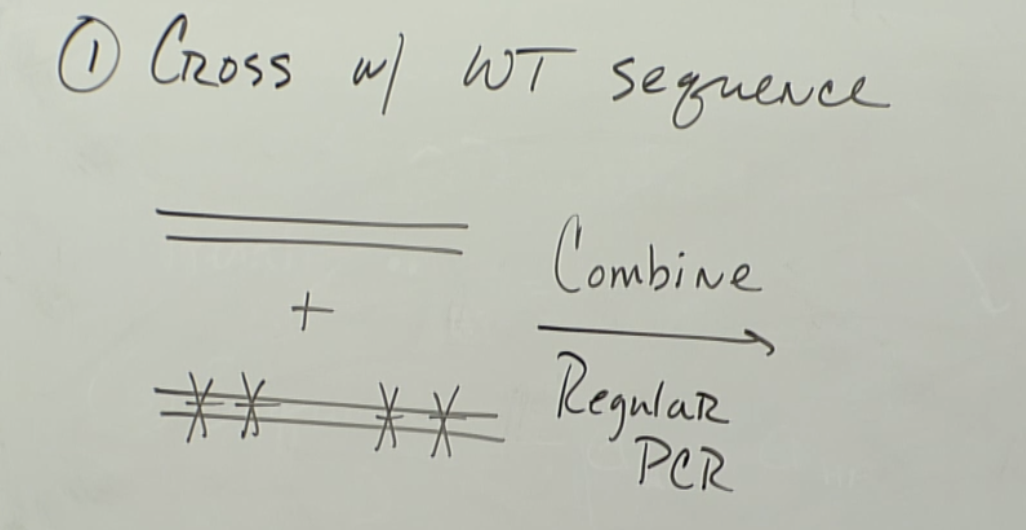 ① Cross w/ WT sequence
+
Combine
Regular
PCR